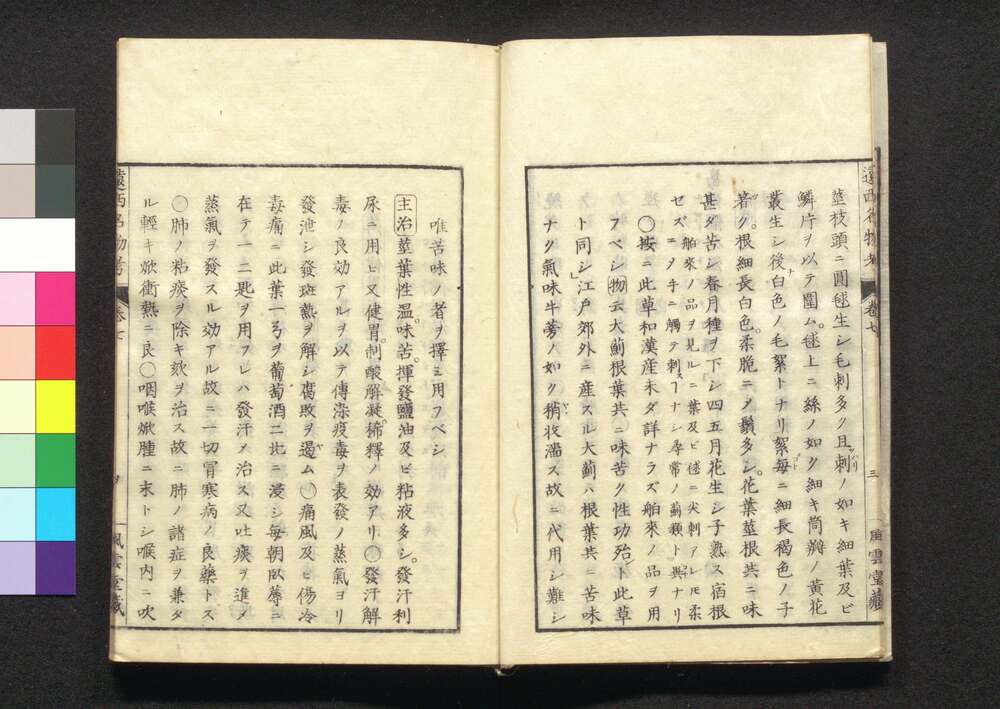 遠西名物考 卷七
莖枝頭ニ圓毬生シ毛刺多ク且刺ノ如キ細葉及ビ
鱗片ヲ以テ圍ム。毬上ニ絲ノ如ク細キ筒瓣ノ黄花
叢生シ後白色ノ毛絮トナリ絮毎ニ細長褐色ノ子
著ク。根細長白色。柔脆ニメ鬚多シ。花葉莖根共ニ味
甚ダ苦シ春月種ヲ下シ四五月花生シ子熟ス宿根
舶來ノ品ヲ見ルニ葉及ビ毬ニ尖刺アレモ柔
セズノ手ニ觸テ刺スーナシ尋常ノ薊類ト異ナリ
〇按ニ此草和漢産未ダ詳ナラズ舶來ノ品ヲ用
フベシ物云大薊根葉共ニ味苦ク性功殆ト此草
ト同シ江戸郊外ニ産スル大薊ハ根葉共ニ苦味
ナク氣味牛蒡ノ如ク稍收濇ス故ニ代用シ難シ
三 風雲堂藏
唯苦味ノ者ヲ擇ミ用フベシ
主治莖葉性溫味苦。揮發鹽油及ビ粘液多シ。發汗利
尿ニ用ヒ又健胃。制酸解凝。稀釋ノ効アリ〇發汗解
毒ノ良効アルヲ以テ傳染疫毒ヲ表發ノ蒸氣ヨリ
發泄シ發斑熱ヲ解シ腐敗ヲ遏ム〇痛風及ヒ傷冷
毒痛ニ此葉一弓ヲ葡萄酒二比ニ浸シ毎朝臥蓐ニ
在テ一二匙ヲ用フレハ發汗メ治ス又吐痰ヲ進メ
蒸氣ヲ發スル効アル故ニ一切冒寒病ノ良藥トス
〇肺ノ粘痰ヲ除キ欬ヲ治ス故ニ肺ノ諸症ヲ兼タ
ル輕キ焮衝熱ニ良〇咽喉焮腫ニ末トシ喉内ニ吹
遠西名物考 卷七
風雲堂藏